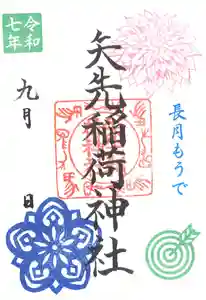 令和
七年
長月もうで
矢先稲荷神社
九月
日